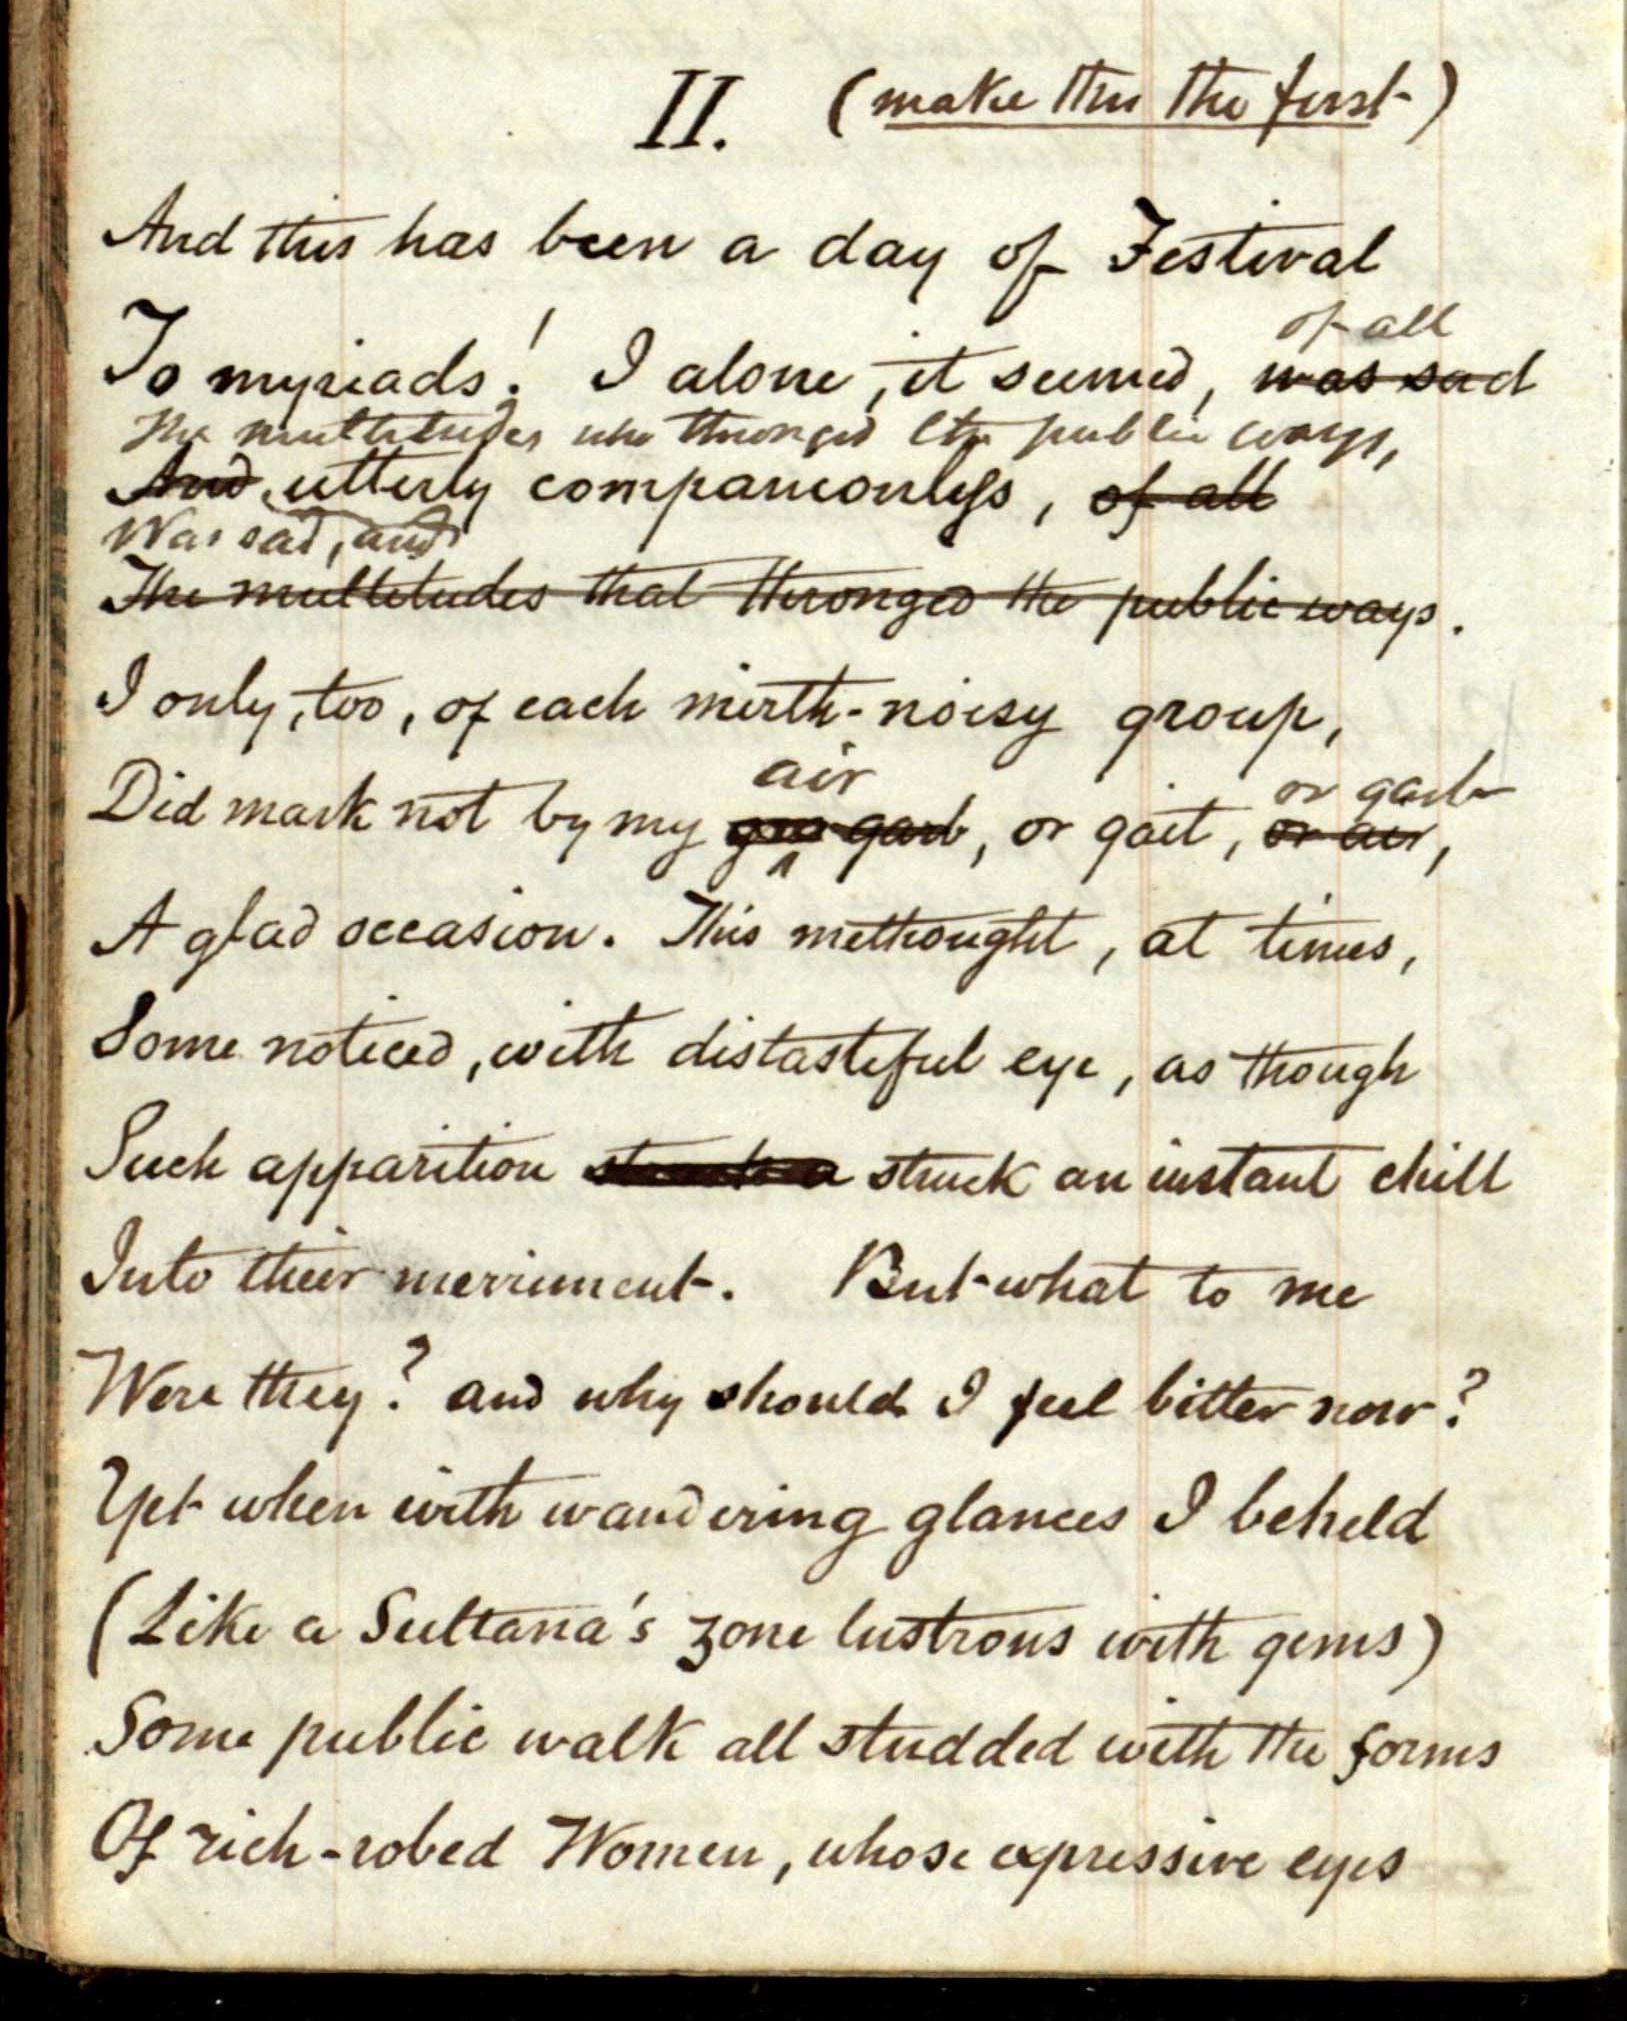 II. (make this the first)
And this has been a day of Festival
of all
To myriads! I alone, it seemed, was sad
The multitudes who thronged the public ways,
And utterly companionless, of all
Was sad, and
The multitudes that thronged the public ways.
I only, too, of each mirth-noisy group,
air or garb
Did mark not by my garb, or gait, or air,
A glad occasion. This methought, at times,
Some noticed, with distasteful eye, as though
Such apparition struck an instant chill
Into their merriment. But what to me
Were they? and why should I feel bitter now?
Yet when with wandering glances I beheld
(Like a Sultana's zone lustrous with gems)
Some public walk all studded with the forms
Of rich-robed Women, whose expressive eyes